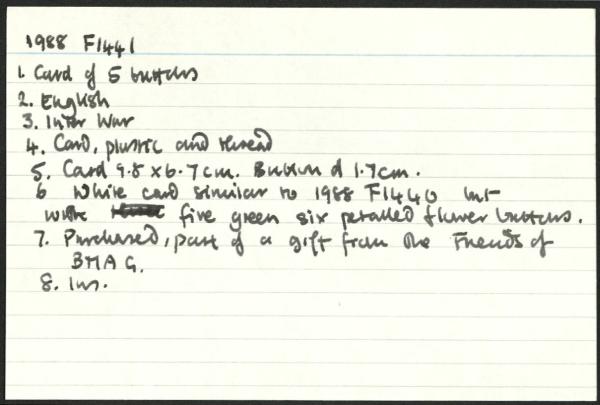 1988 F1441
1. Card of 5 buttons
2. English
3. Inter War
4. Card, plastic and thread
5. Card 9.8 x 6.7cm. Button d 1.7cm.
6 White card similar to 1988 F1440 but
with five green six petalled flower buttons.
7. Purchased, part of a gift from the Friends of
BMAG.
8. Ins.